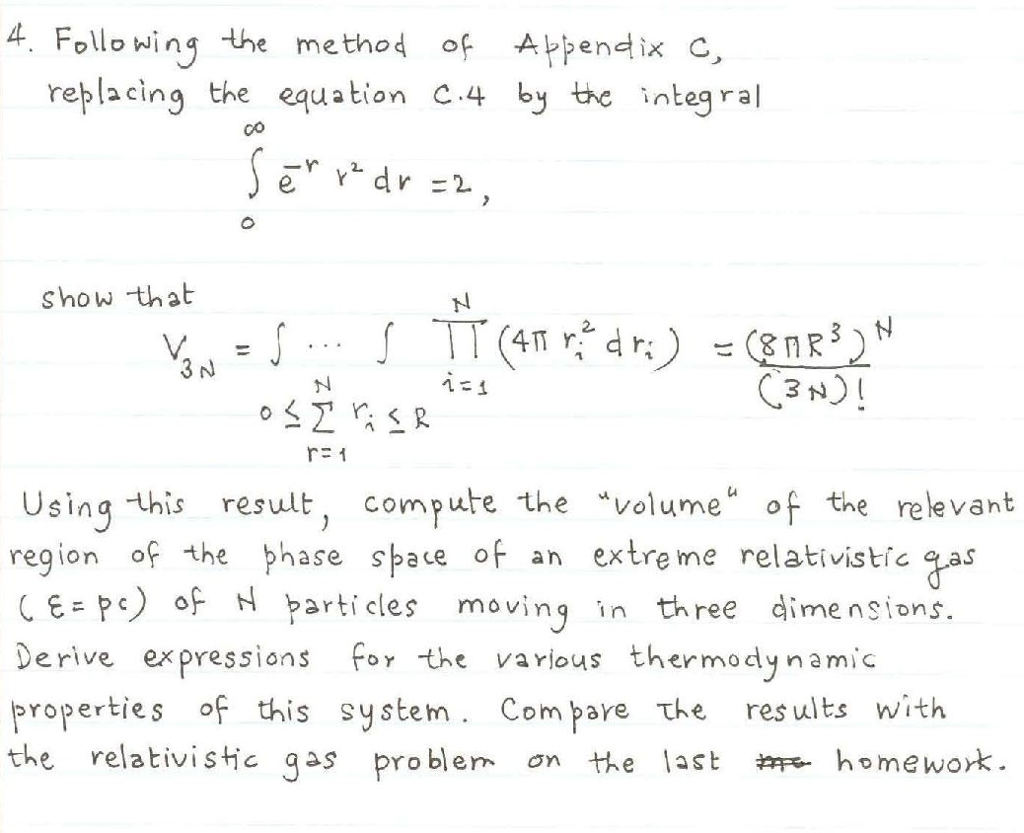 4. Following the method of Appendix C,
replacing the equation C.4 by the integral
∞
∫ e⁻ʳ r² dr = 2,
0
show that
V₃N = ∫ ... ∫ ∏ᵢ₌₁ᴺ (4π rᵢ² drᵢ) = (8πR³)ᴺ / (3N)!
0 ≤ ∑ᵣ₌₁ᴺ rᵢ ≤ R
Using this result, compute the "volume" of the relevant
region of the phase space of an extreme relativistic gas
(ε = pc) of N particles moving in three dimensions.
Derive expressions for the various thermodynamic
properties of this system. Compare the results with
the relativistic gas problem on the last homework.